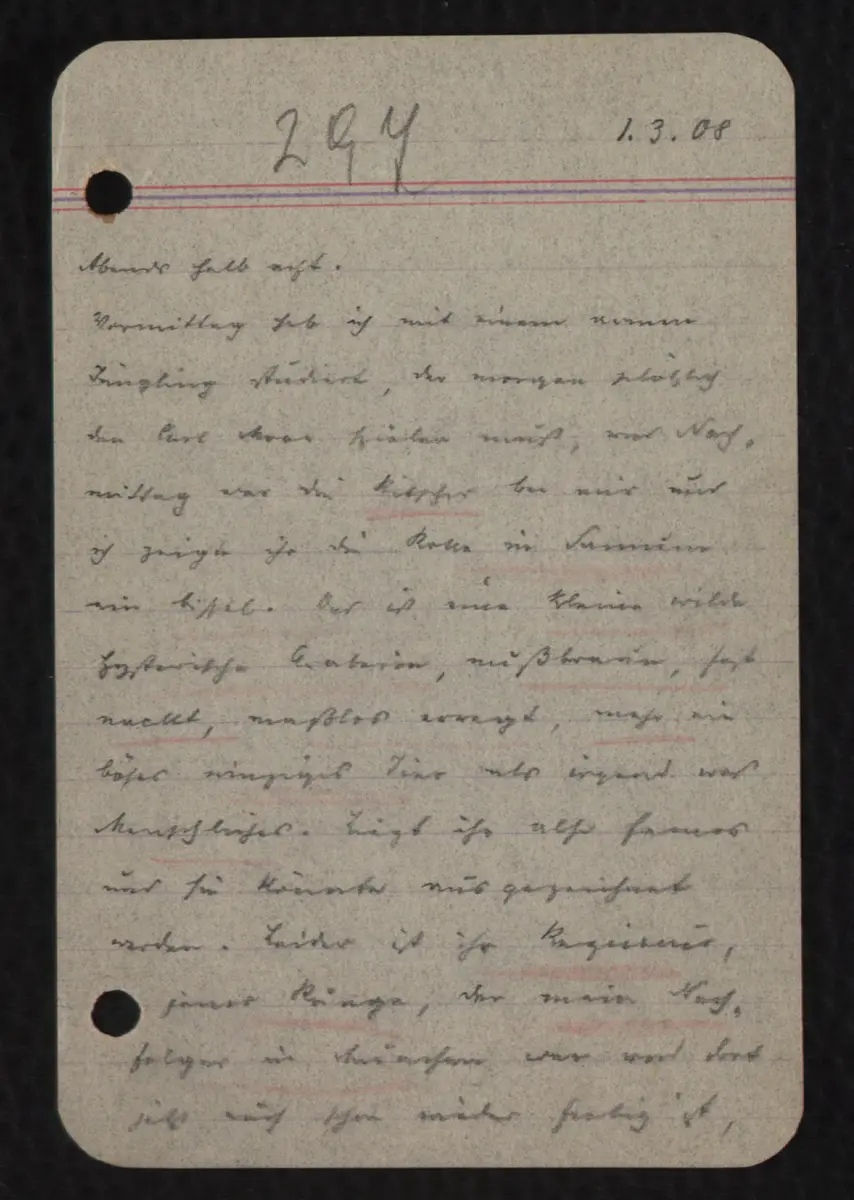 297
1.3.08
Abends halb acht.
Vormittag hab ich mit einem armen
Jüngling studiert, der morgen plötzlich
den Carl Moor spielen muß, und Nach-
mittag war die Kitscher bei mir und
ich zeigte ihr die Rolle in
ein bissel. Das ist eine kleine wilde
hysterische Araberin, nußbraun, fast
nackt, maßlos erregt, mehr ein
böses winziges Tier als irgend was
Menschliches. Liegt ihr also famos
und sie könnte ausgezeichnet
werden. Leider ist ihr Regisseur,
jener Runge, der mein Nach-
folger in München war und dort
jetzt auch schon wieder fertig ist,